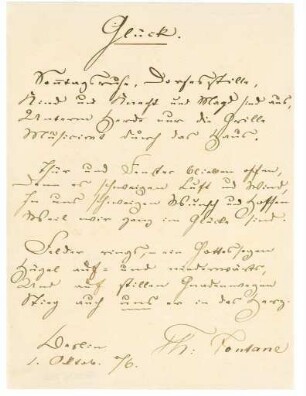 Glück.
Sonntagsruhe, Dorfesstille,
Kind und Knecht und Magd sind aus,
Unterm Herde nur die Grille
Musicirt durch das Haus.
Thür und Fenster blieben offen,
Denn es schweigen Luft und Wind,
In uns schweigen Wunsch und Hoffen
Weil wir ganz im Glücke sind.
Felder rings, ein Gottessegen
Hügel auf- und niederwärts,
Und auf stillen Gnadenwegen
Stieg auch uns er in das Herz.
Berlin
1. Oktob. 76.
Th: Fontane